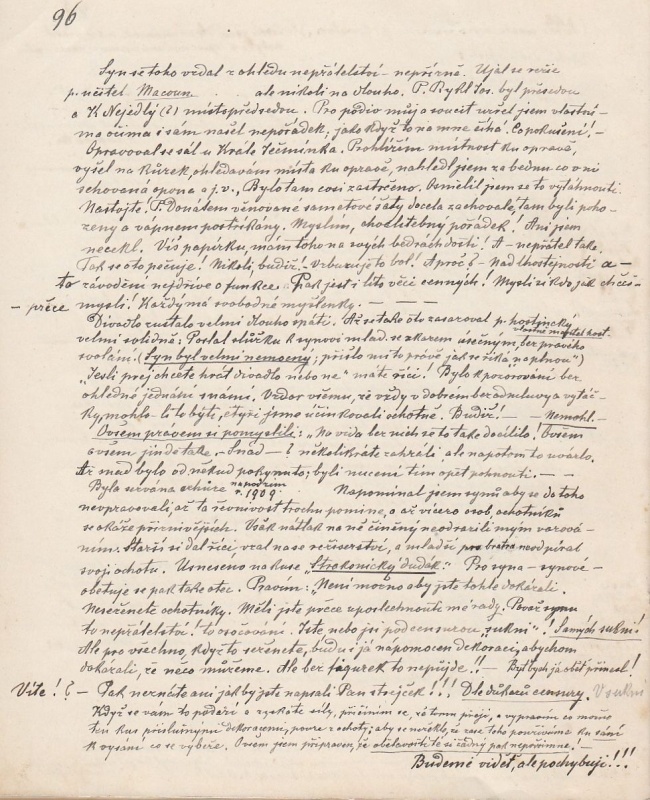 96
Syn se toho vzdal z ohledu nepřátelství - nepřízně. Ujal se režie
p. učitel Macoun . . ale nikoli na dlouho. P. Rykl Jos. byl předsedou
a K Nejedlý (?) místopředsedou. Pro podiv můj a soucit uzřel jsem vlastní-
ma očima i sám našel nepořádek, jako když to na mne číhá! Co pokušení! -
Opravoval se sál u Krále Ječmínka. Prohlížím místnost ku opravě,
vyšel na kůrek, ohledávám místa ku opravě, nahlédl jsem za bednu co v ní
schovaná opona a j. v., Bylo tam cosi zastrčeno. Osmělil jsem se to vytáhnouti.
Nastojte! P. Donátem věnované sametové šaty docela zachovalé, tam byly poho-
zeny a vápnem postříkány. Myslím, chvalitebný pořádek! Ani jsem
necekl. Víš papírku, mám toho na svých bedrách dosti! A - nepřátel také.
Tak se oto pečuje! Nikoli, budiž! - Vzbuzuje to bol! A proč? - Nad lhostejností a -
to závoděni nejdříve o funkce a Pak jest i líto věcí cenných! Mysli si kdo jak chceš -
- přece mysli! Každý má svobodné myšlenky. - - -
Divadlo zůstalo velmi dlouho spáti. Až se také oto zasazoval p. hostinský
vlastně majitel host.
velmi solidně: Poslal služku k synovi mlad. se vzkazem úsečným, bez pravého
svolání. (Syn byl velmi nemocný; přišlo mi to právě jak se říká „na plnou“)
„Jestli prej chcete hrát divadlo nebo ne“ máte říci! Bylo k pozorování bez
ohledné jednání známí. Vzdor všemu, že vždy v dobrém bez odmluvy a vytáč-
ky, mohlo-li to býti, čtyři jsme účinkovali ochotně. Budiž! - - Nemohl. -
Ovšem právem si pomyslili: „No vida bez nich se to také docílilo! Ovšem
ovšem jinde také. - Snad - ? několikráte zahráli ale napotom to uvázlo.
Až snad bylo od někud pokynuto; byli nuceni tím opět pohnouti. - -
Byla svolána schůze na podzim
r. 1909. Napomínal jsem synů aby se do toho
nevpravovali, až ta řevnivost trochu pomine, a až vícero osob, ochotníků
se okáže příznivějších. Však nátlak na ně činěný neodrazili mým varová-
ním. Starší si dal říci, vzal na se režisérství, a mladší pro bratra neodpíral
svoji ochotu. Usneseno na kuse „Strakonický dudák“. Pro syna - synové -
obětuje se pak také otec. Pravím: „Není možno aby jste tohle dokázali.
Neseženete ochotníky. Měli jste přece uposlechnouti mé rady. Považ synu
to nepřátelství! to osočování. Jste, nebo jsi pod censurou „sukní“! Samých sukní!
Ale pro všechno, když to seženete, budu i já nápomocen dekorací, abychom
dokázali, že něco můžeme. Ale bez figurek to nepůjde!! - Byť bych já oběť přinesl!
Víte! ? - Pak neznáte ani jak by jste napsali Pan strejček!!! Dle důkazů censury. V sukni
Když se vám to podaří a získáte síly, přičiním se, zá tomu přeji, a vypravím co možno
ten kus příslušnými dekoracemi, pouze z ochoty; aby se neřeklo, že zase toho používáme ku
k vysání co se vybere. Ovšem jsem připraven, že obětavosti té si žádný pak nepovšimne! -
Budeme vidět, ale pochybuji!!!